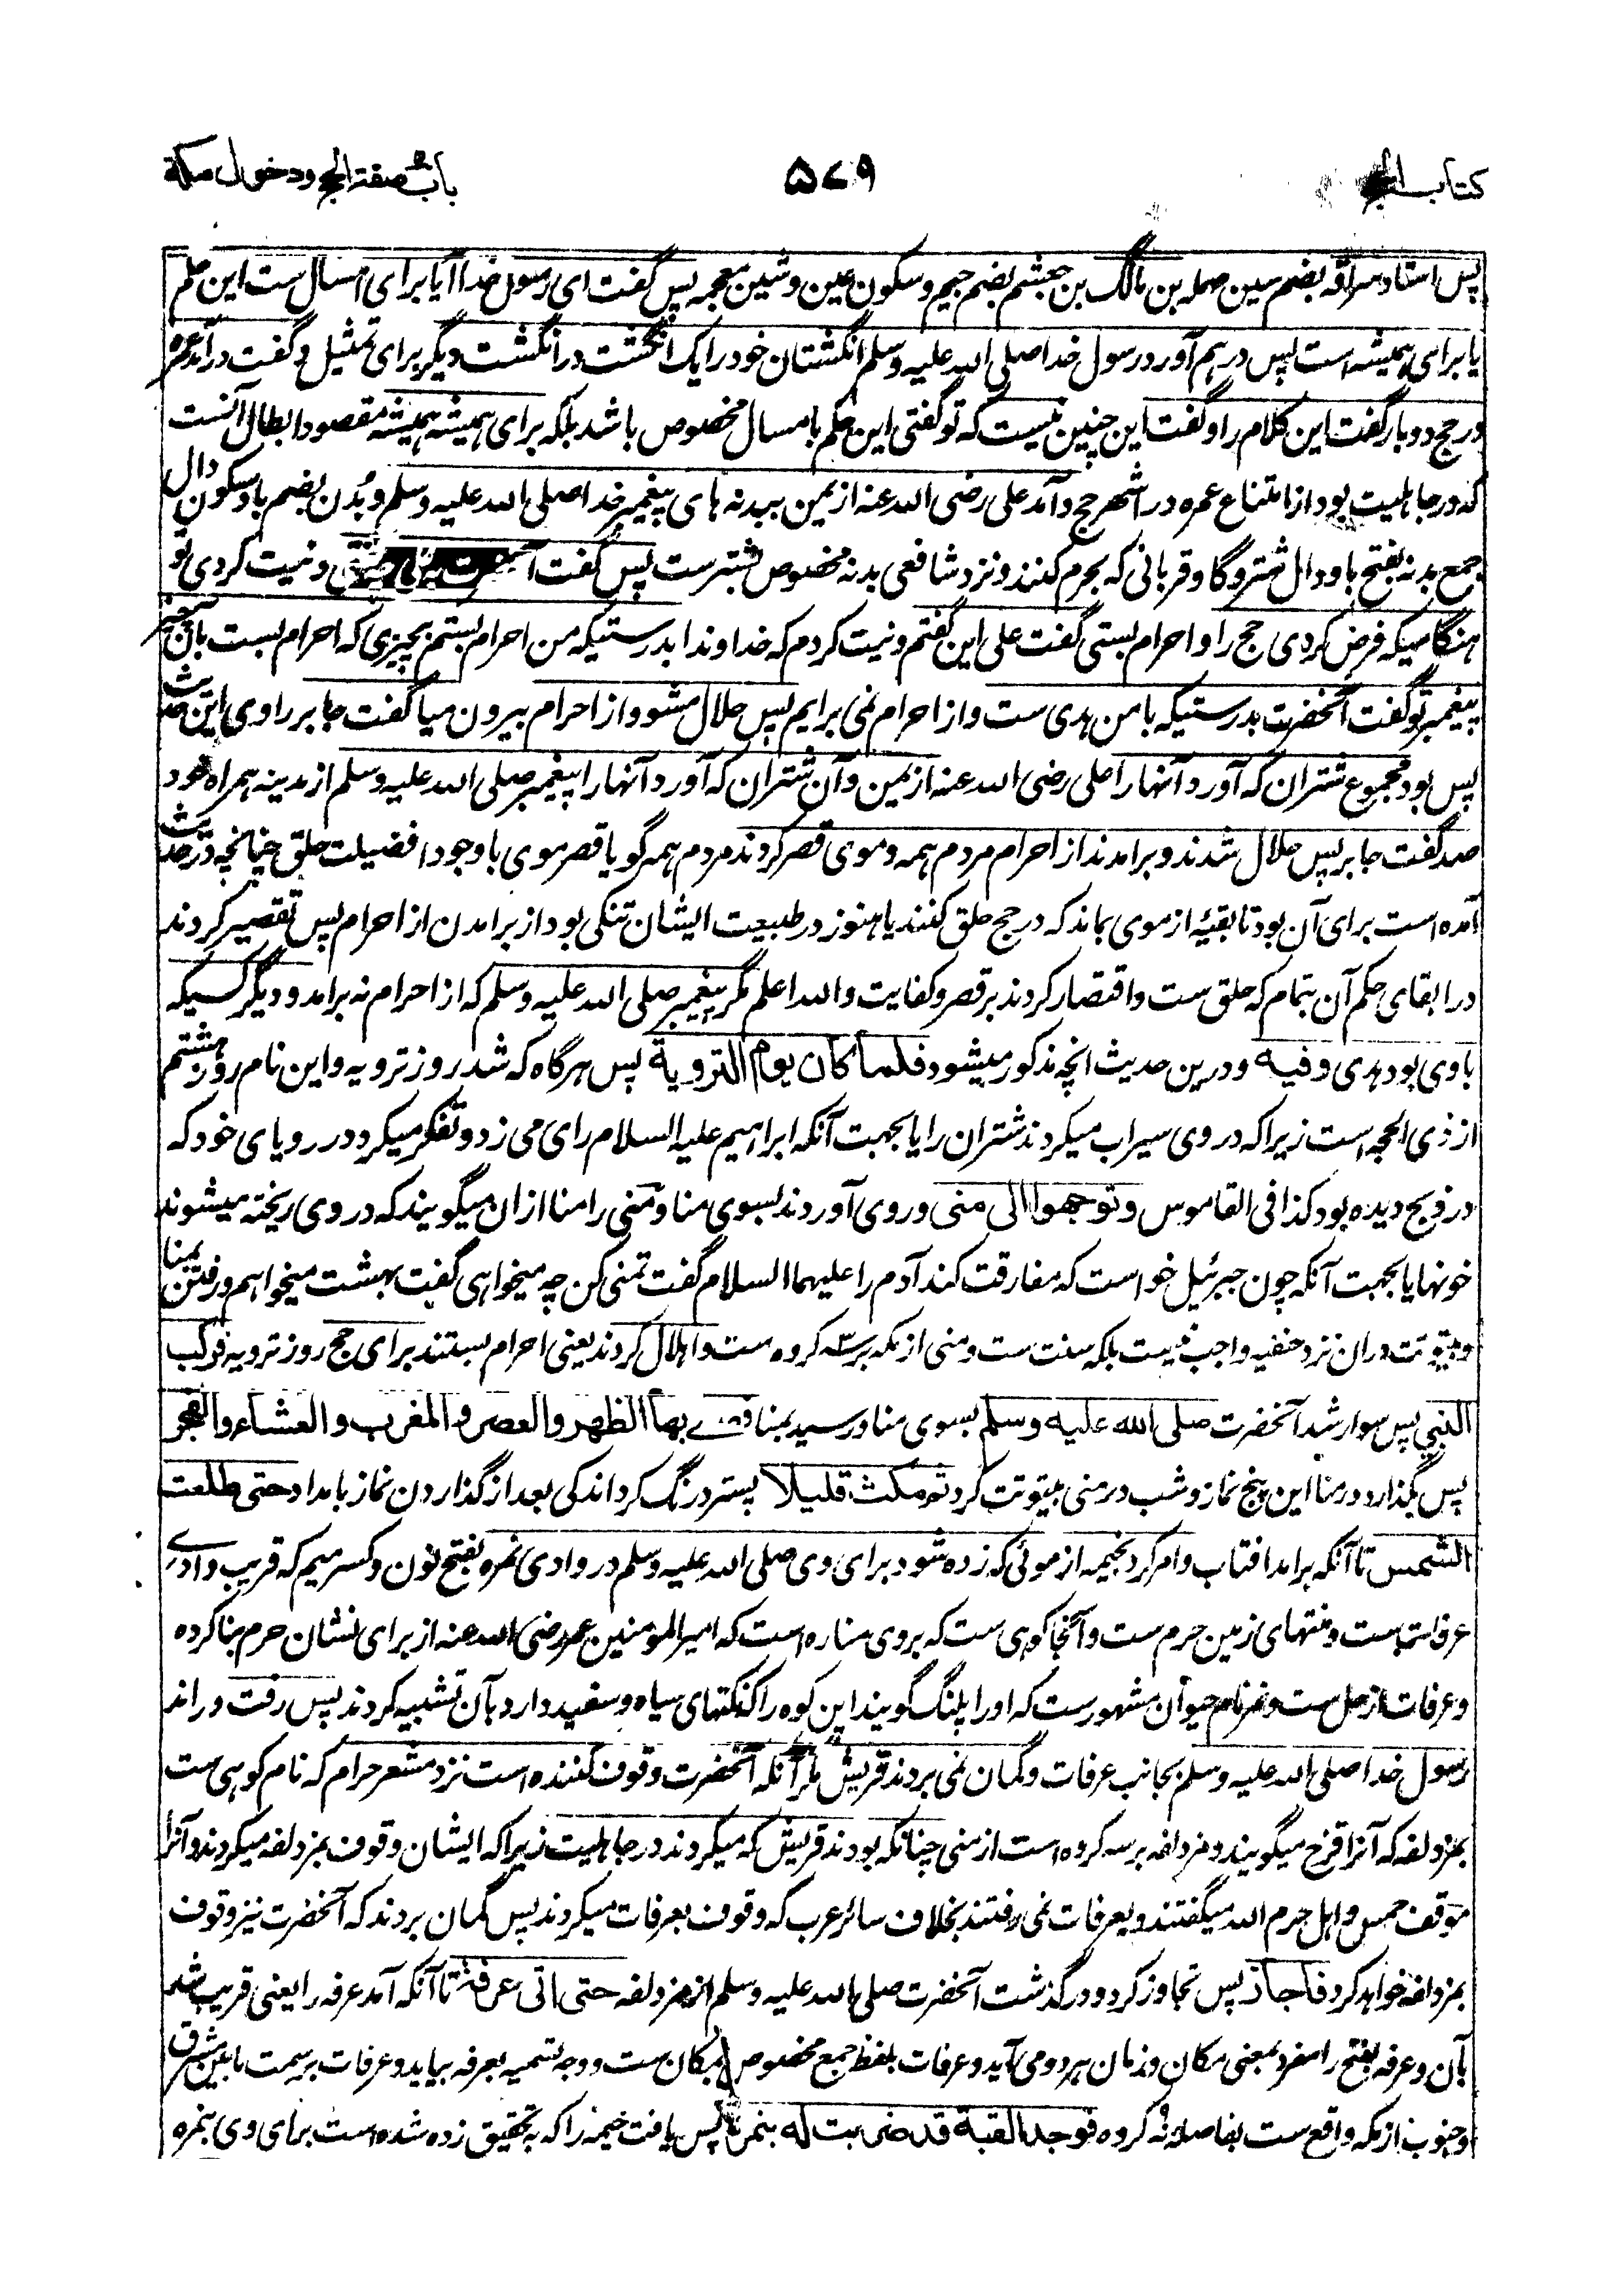 کتاب الحج
۵۷۹
باب صفة الحج ودخول مكة
پس استاد سراقه بضم سین مهمله بن مالک بن جعشم بضم جیم و سکون عین و شین معجمه پس گفت ای رسول خدا آیا برای امسال ست این حکم
یا برای همیشه است پس درهم آورد رسول خدا صلی الله علیه وسلم انگشتان خود را یک انگشت در انگشت دیگر برای تمثیل و گفت درآمد عمره
در حج دو بار گفت این کلام را و گفت این چنین نیست که تو گفتی این حکم بامسال مخصوص باشد بلکه برای همیشه همیشه مقصود ابطال آنست
که در جاهلیت بود از امتناع عمره در اشهر حج و آمد علی رضی الله عنه از یمن ببدنه های پیغمبر خدا صلی الله علیه وسلم و بُدن بضم با و سکون دال
جمع بدنه بفتح با و دال شتر و گاو قربانی که بحرم کنند و نزد شافعی بدنه مخصوص بشترست پس گفت و نیت کردی تو
هنگامیکه فرض کردی حج را و احرام بستی گفت علی این گفتم و نیت کردم که خداوندا بدرستیکه من احرام بستم بچیزی که احرام بست بآن چیز
پیغمبر تو گفت آنحضرت بدرستیکه با من هدی ست و از احرام نمی برایم پس حلال مشو و از احرام بیرون میا گفت جابر راوی این حدیث
پس بود مجموع شتران که آورد آنها را علی رضی الله عنه از یمن و آن شتران که آورد آنها را پیغمبر صلی الله علیه وسلم از مدینه همراه خود
صد گفت جابر پس حلال شدند و برامدند از احرام مردم همه و موی قصر کردند مردم همه گویا قصر موی با وجود افضلیت حلق چنانچه در حدیث
آمده است برای آن بود تا بقیهٔ از موی بماند که در حج حلق کنند یا هنوز در طبیعت ایشان تنگی بود از برامدن از احرام پس تقصیر کردند
در ابقای حکم آن بتمام که حلق ست و اقتصار کردند بر قصر و کفایت و الله اعلم مگر پیغمبر صلی الله علیه وسلم که از احرام نه برامد و دیگر کسیکه
با وی بود هدی وفیه و درین حدیث انچه مذکور میشود فلما كان يوم التروية پس هرگاه که شد روز ترویه و این نام روز هشتم
از ذی الحجه است زیرا که در وی سیراب میکردند شتران را یا بجهت آنکه ابراهیم علیه السلام رای می زد و تفکر میکرد در رویای خود که
در ذبح دیده بود کذا فی القاموس وتوجهوا الى منى و روی آوردند بسوی منا و منی را منا ازان میگویند که در وی ریخته میشوند
خونها یا بجهت آنکه چون جبرئیل خواست که مفارقت کند آدم را علیهما السلام گفت تمنی کن چه میخواهی گفت بهشت میخواهم و رفتن بمنا
و بیتوتت دران نزد حنفیه واجب نیست بلکه سنت ست و منی از مکه بر سه کروه ست و اهلال کردند یعنی احرام بستند برای حج روز ترویه فركب
النبي پس سوار شد آنحضرت صلى الله عليه وسلم بسوی منا و رسید بمنا فصلى بها الظهر والعصر والمغرب والعشاء والفجر
پس بگذارد در منا این پنج نماز و شب در منی بیتوتت کرد ثم مكث قليلا پستر درنگ کرد اندکی بعد از گذاردن نماز بامداد حتى طلعت
الشمس تا آنکه برامد افتاب و امر کرد بخیمه از موئی که زده شود برای وی صلی الله علیه وسلم در وادی نمره بفتح نون و کسر میم که قریب وادی
عرفاتست و منتهای زمین حرم ست و آنجا کوهی ست که بروی مناره است که امیرالمومنین عمر رضی الله عنه از برای نشان حرم بنا کرده
و عرفات از حل ست و نمر نام حیوان مشهورست که او را پلنگ گویند این کوه را که نکتهای سیاه و سفید دارد بآن تشبیه کردند پس رفت و راند
رسول خدا صلی الله علیه وسلم بجانب عرفات و گمان نمی بردند قریش مگر آنکه آنحضرت وقوف کننده است نزد مشعر حرام که نام کوهی ست
بمزدلفه که آنرا قزح میگویند و مزدلفه بر سه کروه است از منی چنانکه بودند قریش که میکردند در جاهلیت زیرا که ایشان وقوف بمزدلفه میکردند و آنرا
موقف حمس و اهل حرم الله میگفتند و بعرفات نمی رفتند بخلاف سائر عرب که وقوف بعرفات میکردند پس گمان بردند که آنحضرت نیز وقوف
بمزدلفه خواهد کرد فاجاز پس تجاوز کرد و درگذشت آنحضرت صلی الله علیه وسلم از مزدلفه حتى اتى عرفة تا آنکه آمد عرفه را یعنی قریب شد
بآن و عرفه بفتح را مفرد بمعنی مکان و زمان هر دو می آید و عرفات بلفظ جمع مخصوص بمکان ست و وجه تسمیه بعرفه بیاید و عرفات بر سمت مابین مشرق
و جنوب از مکه واقع ست بفاصله نه کروه فوجد القبة قد ضربت له بنمرة پس یافت خیمه را که به تحقیق زده شده است برای وی بنمره